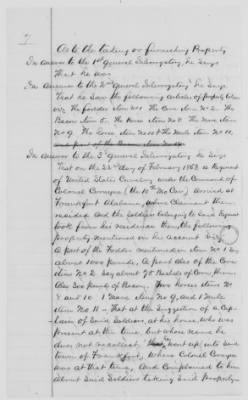 As to the taking or furnishing Property
In answer to the 1st General Interrogatory, he Says
That he was
In answer to the 2nd General Interrogatory he Says
That he Saw the following articles of property taken
viz. The Fodder item No 1. The Corn item No 2. The
Bacon item 5. The Horse item No 8 The Mare item
No 9. The Horse item No 10 & The Mule item No 11.
In answer to the 3d General Interrogatory he Says
That on the 22nd day of February 1863 a Regiment
of United States Cavalry under the Command of
Colonel Cornyn (the 10th Mo Cav) arrived at
Frankfort Alabama, where Claimant then
resided and the Soldiers belonging to Said Regiment
took from his residence then, the following
property mentioned on his account
A part of the Fodder mentioned in item No 1 Say
about 1000 pounds, A part also of the Corn
item No 2 Say about 75 Bushels of Corn, them
Also 300 pounds of Bacon, Two horses item No
8 and 10 1 Mare item No 9, and 1 Mule
item No 11 – That at the Suggestion of a Cap-
tain of Said Soldiers, at his house, who was
present at the time, but whose name he
does not recollect, he went up into Said
town of Frankfort, where Colonel Cornyn
was at that time, and Complained to him
about Said Soldiers taking Said Property –